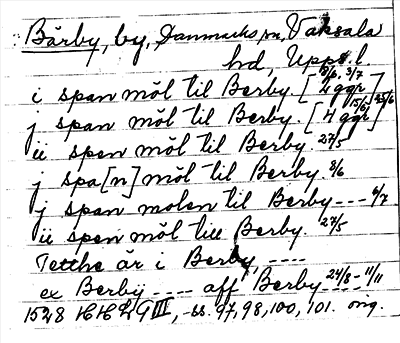 Bärby, by, Danmarks sn, Vaksala
hd, Upps. l.
i span möl til Berby. [2 ggr] 15/6, 3/7
j span möl til Berby. [4 ggr] 15/6, 25/6
ii spen möl til Berby. 27/5
j spa[n] möl til Berby. 8/6
j span molen til Berby --- 6/7
ii spen möl till Berby. 27/5
Tetthe är i Berby ----
ex Berby ---- aff Berby 24/8 - 11/11
1528 HH ZG III, - ss. 97, 98, 100, 101. orig.